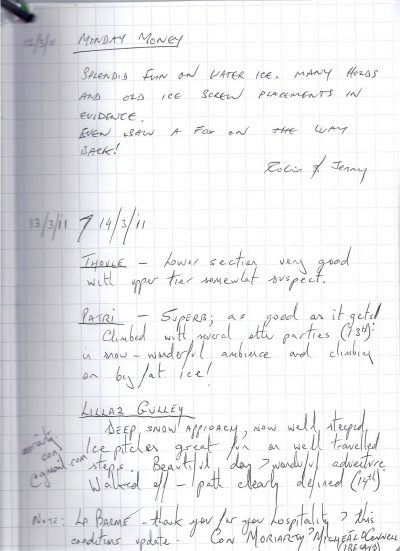 12/3/11
MONDAY MONEY
SPLENDID FUN ON WATER ICE. MANY HOLDS
AND OLD ICE SCREW PLACEMENTS IN
EVIDENCE.
EVEN SAW A FOX ON THE WAY
BACK!
Colin & Jenny
13/3/11 / 14/3/11
THOULE - Lower section very good
with upper tier somewhat suspect.
PATRI - SUPERB; as good as it gets!
Climbed with several other parties (13th)
in snow - wonderful ambience and climbing
on big fat ice!
LILLAZ GULLEY
DEEP SNOW APPROACH, now well stepped.
Ice pitches great fun on well travelled
steps. Beautiful day > wonderful adventure
Walked off - path clearly defined (14th)
moriarty
con
@gmail.com
NOTE: LA BARME - thank you for you hospitality > this
conditions update. CON MORIARTY > MICHEÁL O'CONNELL
(IRELAND)